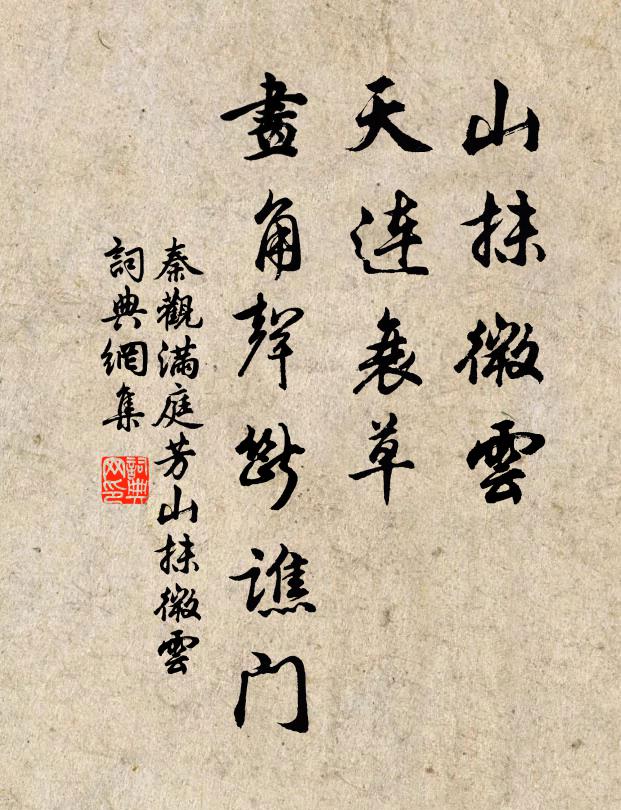 山抹微雲
天連衰草
畫角聲斷譙門
秦觀滿庭芳山抹微雲
詞典網集
詞典网印